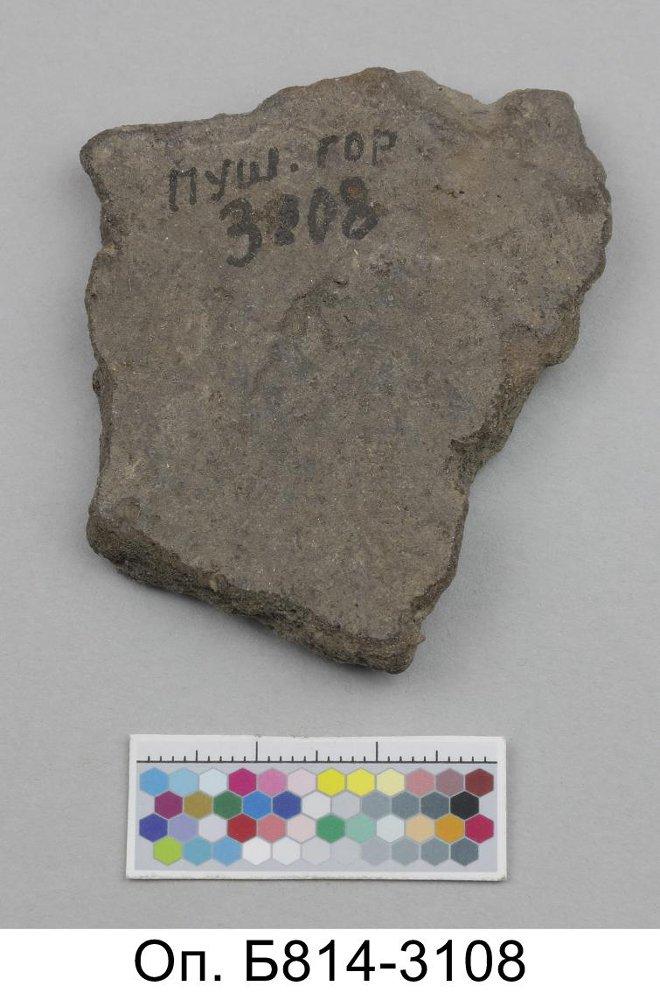 ПУШ. ГОР
3108
Оп. Б814-3108